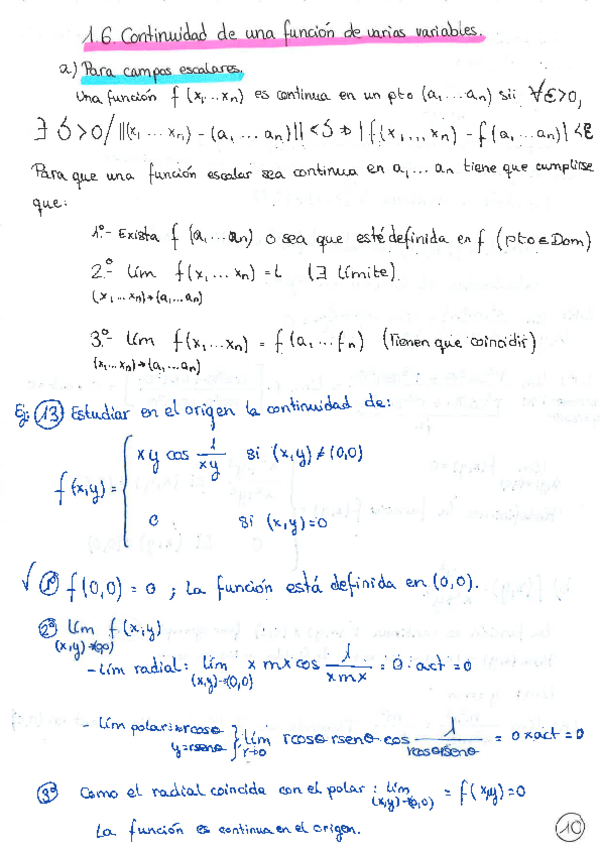 1.6. Continuidad de una función de varias variables.
a) Para campos escalares.
Una función f (x₁ ... xₙ) es continua en un pto (a₁ ... aₙ) sii ∀ε>0,
∃ δ>0 / ||(x₁ ... xₙ) - (a₁ ... aₙ)|| < δ ⇒ |f(x₁, ..., xₙ) - f(a₁ ... aₙ)| < ε
Para que una función escalar sea continua en a₁ ... aₙ tiene que cumplirse
que:
1º.- Exista f (a₁ ... aₙ) o sea que esté definida en f (pto ∈ Dom)
2º- lím f(x₁ ... xₙ) = L (∃ límite).
(x₁ ... xₙ)→(a₁ ... aₙ)
3º- lím f(x₁ ... xₙ) = f(a₁ ... fₙ) (Tienen que coincidir)
(x₁ ... xₙ)→(a₁ ... aₙ)
Ej: 13 Estudiar en el origen la continuidad de:
f(x,y) = { xy cos 1/xy si (x,y) ≠ (0,0)
0 si (x,y)=0
√ 1º f(0,0) = 0 ; La función está definida en (0,0).
2º lím f(x,y)
(x,y)→(0,0)
- Lím radial: lím x mx cos 1/x mx = 0 · act = 0
(x,y)→(0,0)
- Lím polar: x=rcosθ y=rsenθ } lím r→0 rcosθ rsenθ cos 1/rcosθrsenθ = 0 x act = 0
3º Como el radial coincide con el polar : lím (x,y)→(0,0) = f(x,y)=0
La función es continua en el origen.
10